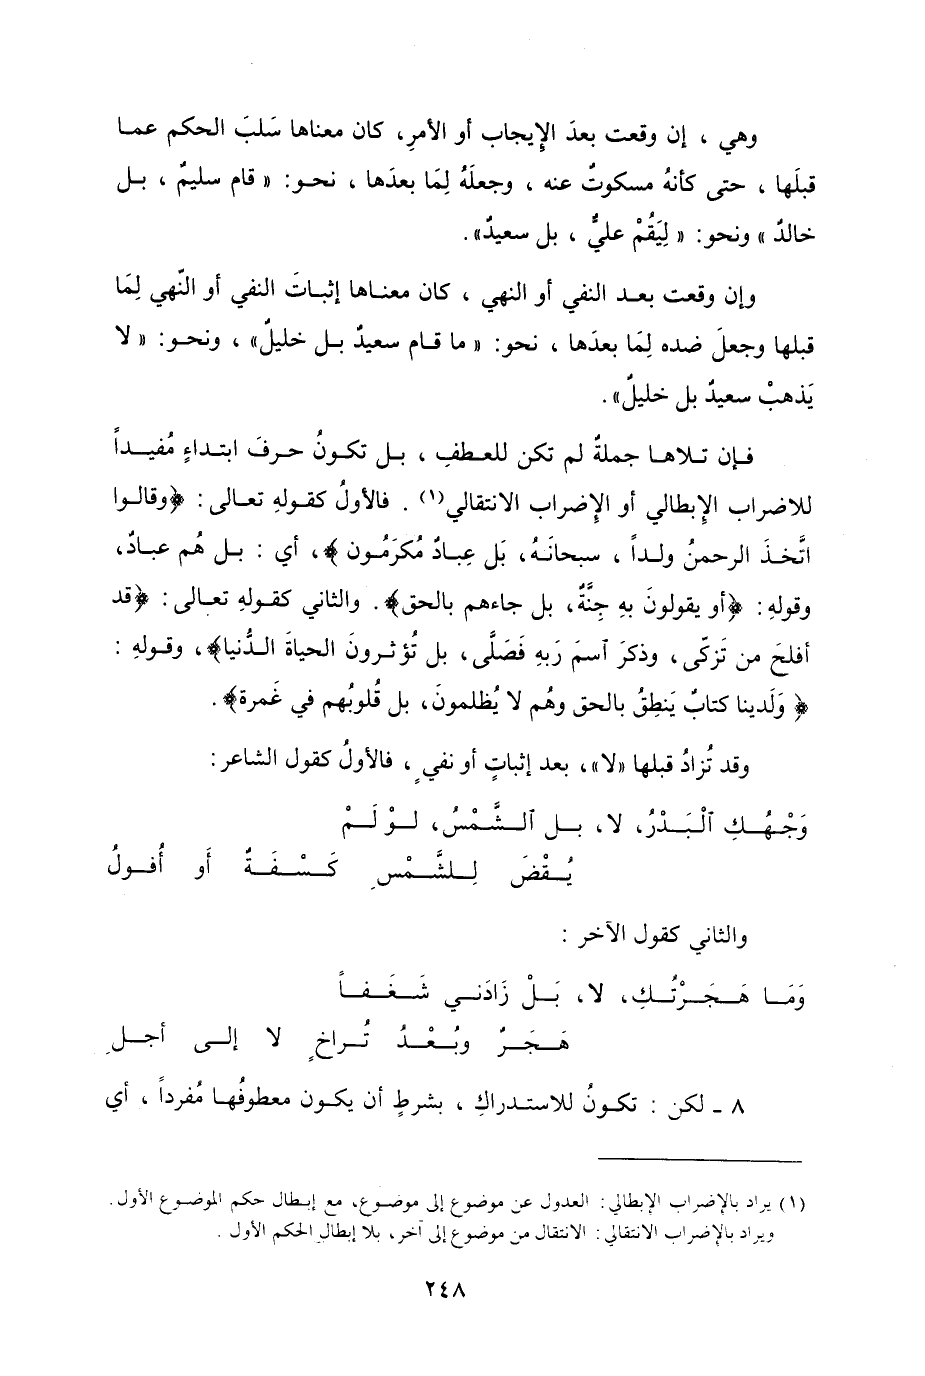 وهي ، إن وقعت بعدَ الإيجاب أو الأمرِ، كان معناها سَلبَ الحكم عما
قبلَها ، حتى كأنهُ مسكوتٌ عنه ، وجعلَهُ لِمَا بعدَها ، نحو: « قام سليمٌ ، بل
خالدٌ » ونحو: « لِيَقُمْ عليٌّ ، بل سعيدٌ».
وإن وقعت بعد النفي أو النهي ، كان معناها إثباتَ النفي أو النّهي لِمَا
قبلها وجعلَ ضده لِمَا بعدَها ، نحو: « ما قام سعيدٌ بل خليلٌ» ، ونحو: « لا
يَذهبْ سعيدٌ بل خليلٌ».
فإن تلاها جملةٌ لم تكن للعطفِ ، بل تكونُ حرفَ ابتداءٍ مُفيداً
للاضراب الإبطالي أو الإضراب الانتقالي(١) . فالأولُ كقولهِ تعالى: ﴿وقالوا
اتَّخذَ الرحمنُ ولداً ، سبحانَهُ، بَل عِبادٌ مُكرَمُون ﴾، أي : بل هُم عبادٌ،
وقولهِ: ﴿أو يقولونَ بهِ جِنَّةٌ، بل جاءهم بالحق﴾. والثاني كقولهِ تعالى: ﴿قد
أفلحَ من تَزكّى، وذكرَ ٱسمَ رَبهِ فَصَلَّى، بل تُؤثرونَ الحياةَ الدُّنيا﴾، وقوله :
﴿ وَلَدينا كتابٌ يَنطِقُ بالحق وهُم لا يُظلمونَ، بل قُلوبُهم في غَمرة﴾.
وقد تُزادُ قبلها «لا»، بعد إثباتٍ أو نفيٍ ، فالأولُ كقول الشاعر:
وَجْهُكِ ٱلْبَدْرُ، لا، بل ٱلشَّمْسُ، لوْ لَمْ
يُقْضَ لِلشَّمْسِ كَسْفَةٌ أَو أُفولُ
والثاني كقول الآخر :
وَمَا هَجَرْتُكِ، لا، بَلْ زَادَني شَغَفاً
هَجرٌ وبُعْدٌ تُراخٍ لا إلى أجلِ
٨ ـ لكن : تكونُ للاستدراكِ ، بشرطِ أن يكون معطوفُها مُفرداً ، أي
(١) يراد بالإضراب الإبطالي: العدول عن موضوع إلى موضوع، مع إبطال حكم الموضوع الأول.
ويراد بالإضراب الانتقالي: الانتقال من موضوع إلى آخر، بلا إبطال الحكم الأول .
٢٤٨